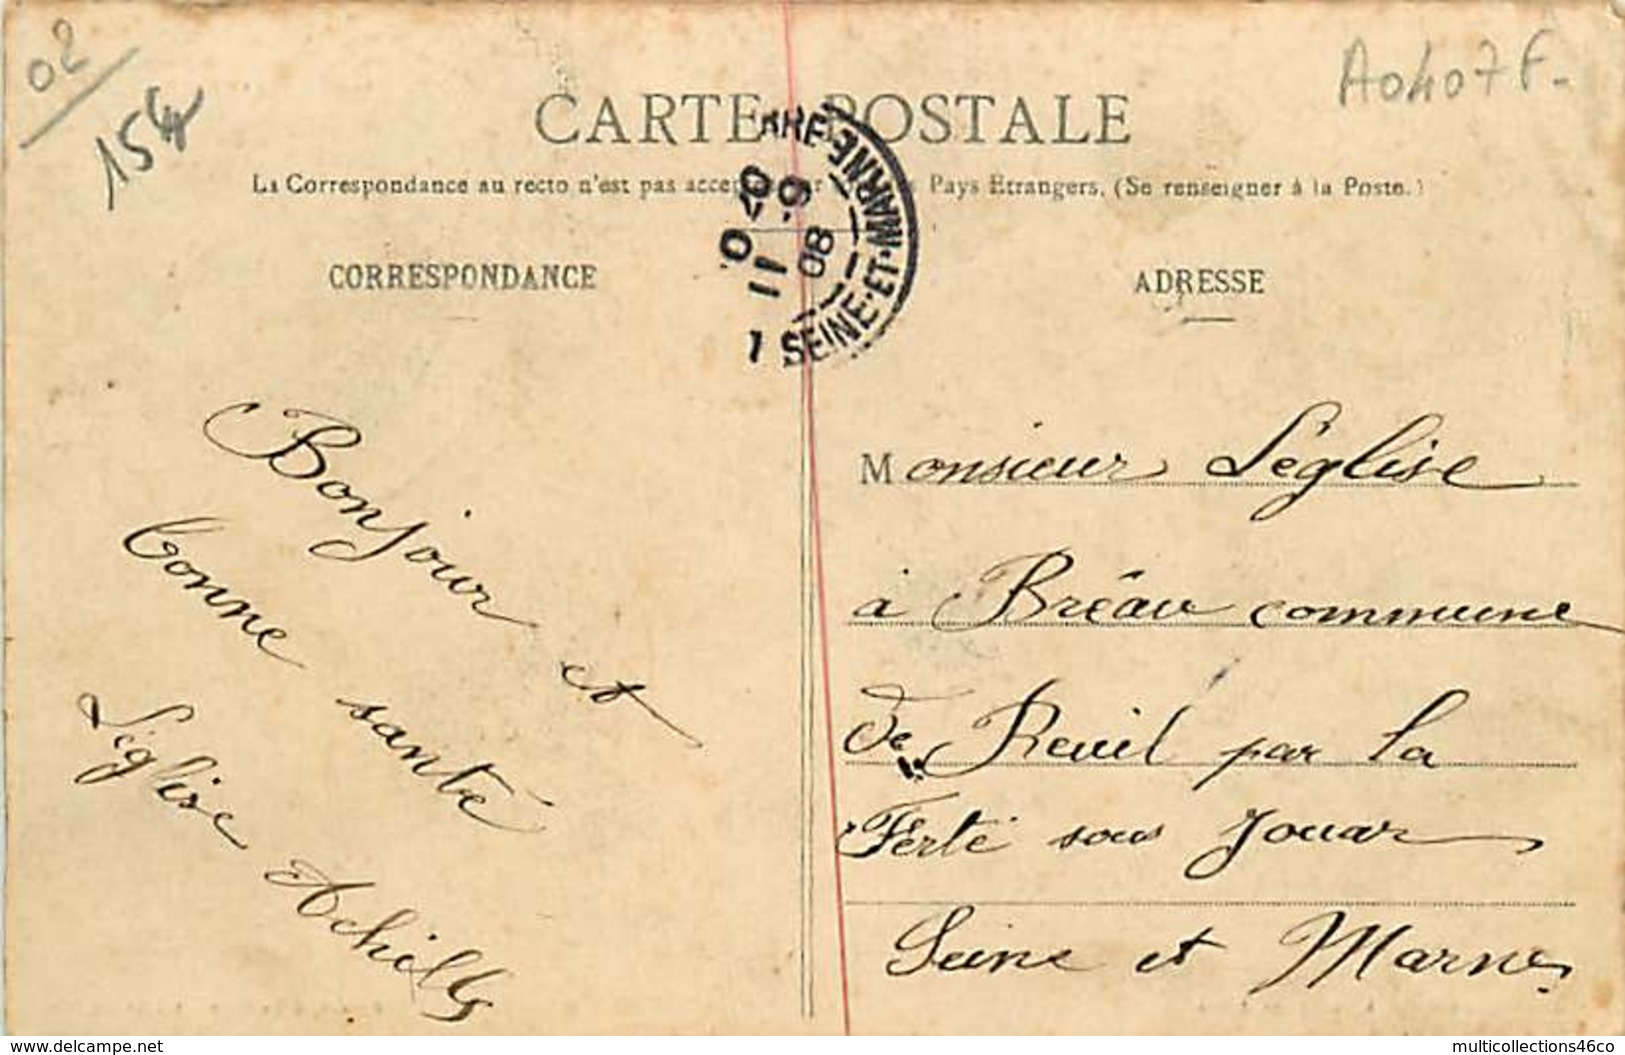 02
154
A0407F-
CARTE POSTALE
La Correspondance au recto n'est pas Pays Etrangers. (Se renseigner à la Poste.)
CORRESPONDANCE
ADRESSE
SEINE-ET-MARNE
11
08
Bonjour et
bonne santé
Léglise Achille
Monsieur Léglise
à Bréau commune
de Reuil par la
Ferté sous Jouar
Seine et Marne
www.delcampe.net
multicollections46co